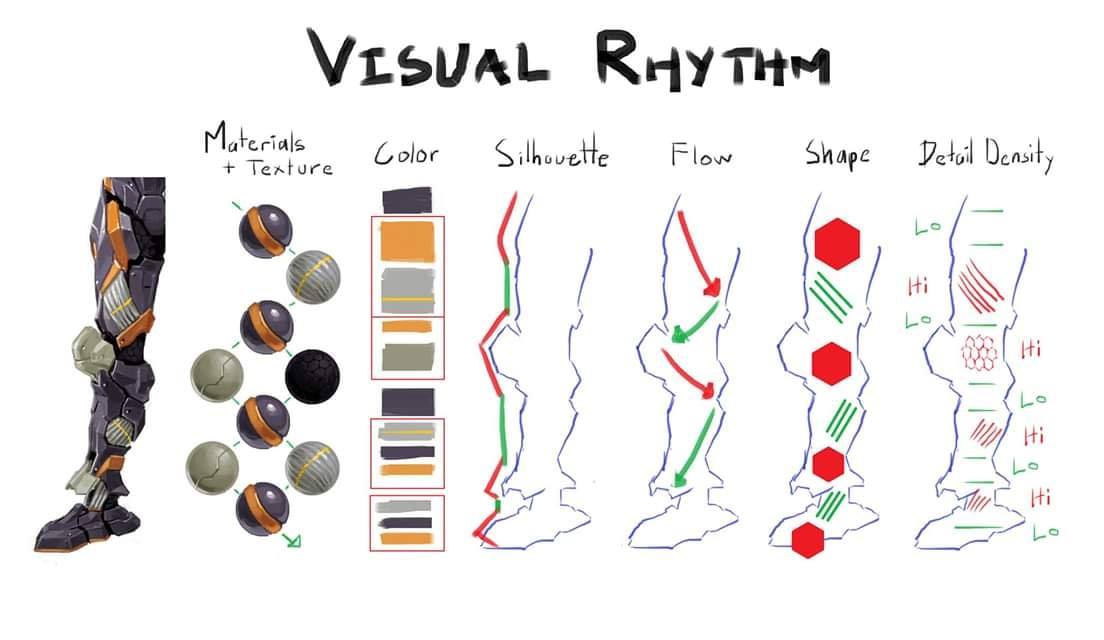 VISUAL RHYTHM
Materials
+ Texture
Color
Silhouette
Flow
Shape
Detail Density
Lo
Hi
Lo
Hi
Lo
Hi
Lo
Hi
Lo